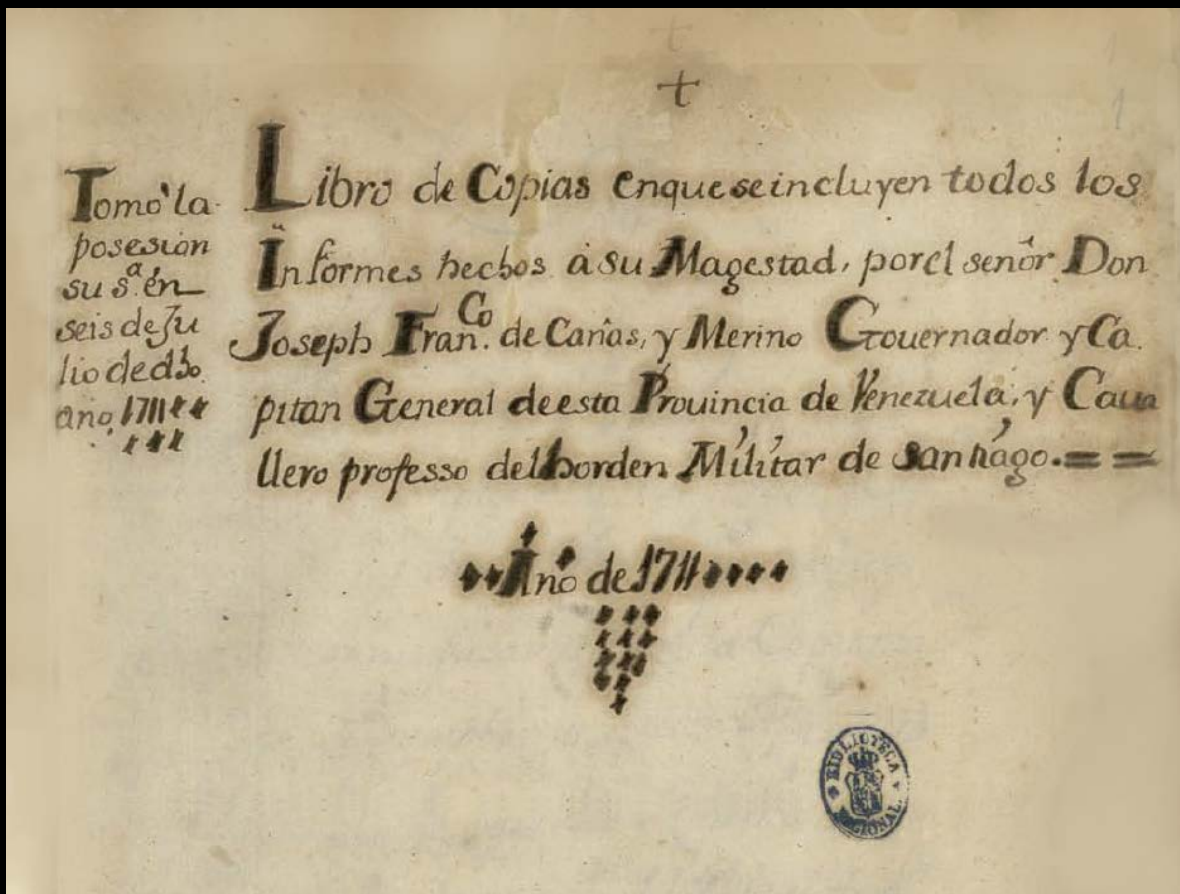 +
1
Tomó la
posesion
su sª. én
seis de Ju
lio de dho.
año, 1711
Libro de Copias enque se incluyen todos los
Informes hechos à su Magestad, por el señor Don
Joseph Fran.Co de Cañas, y Merino Gouernador y Ca
pitan General de esta Prouincia de Venezuela, y Caua
llero professo del horden Militar de Santiago. = =
Año de 1711
BIBLIOTECA
NACIONAL